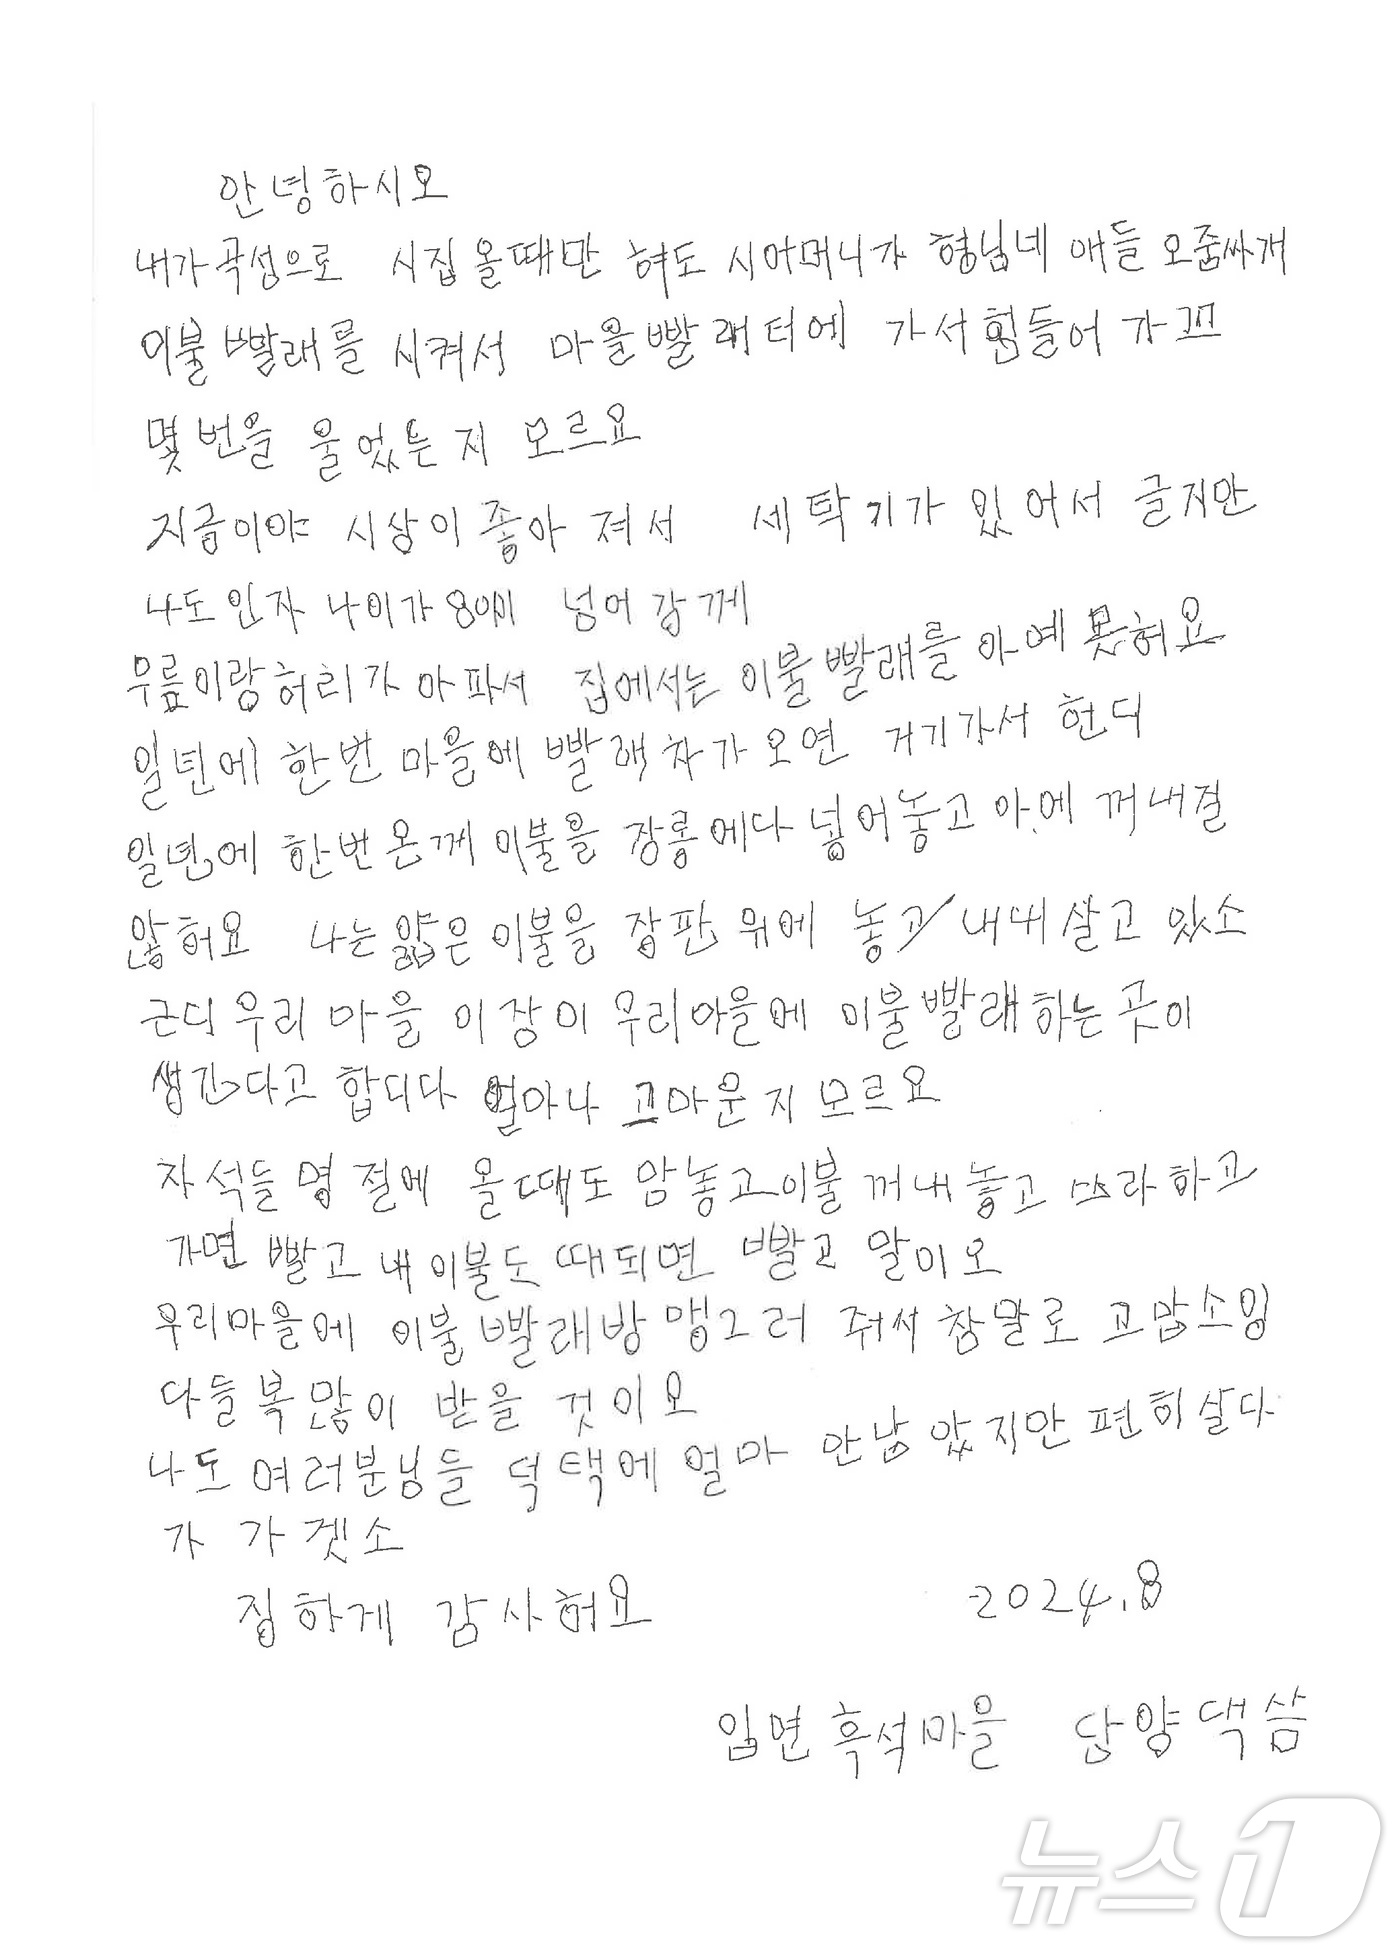 안녕하시오
내가곡성으로 시집올때만 혀도 시어머니가 형님네 애들 오줌싸개
이불 빨래를 시켜서 마을빨래터에 가서힘들어가꼬
몇번을 울었는지 모르요
지금이야 시상이 좋아져서 세탁기가 있어서 글지만
나도인자 나이가 80이 넘어강께
무릎이랑허리가 아파서 집에서는 이불빨래를 아예 못혀요
일년에 한번 마을에 빨래차가오면 거기가서 헌디
일년에 한번온께 이불을 장롱에다 넣어놓고 아에 꺼내질
않혀요 나는얇은이불을 장판위에 놓고 내내살고 있소
근디우리마을 이장이 우리마을에 이불빨래하는곳이
생긴다고 합디다 얼마나 고마운지모르요
자석들명절에 올때도 맘놓고이불꺼내놓고 쓰라하고
가면 빨고 내이불도 때되면 빨고 말이오
우리마을에 이불빨래방 맹그러 줘서 참말로 고맙소잉
다들복많이 받을 것이요
나도여러분님들 덕택에 얼마 안남았지만 편히살다
가 가겟소
징하게 감사혀요 2024.8
입면흑석마을 담양댁삼
뉴스1